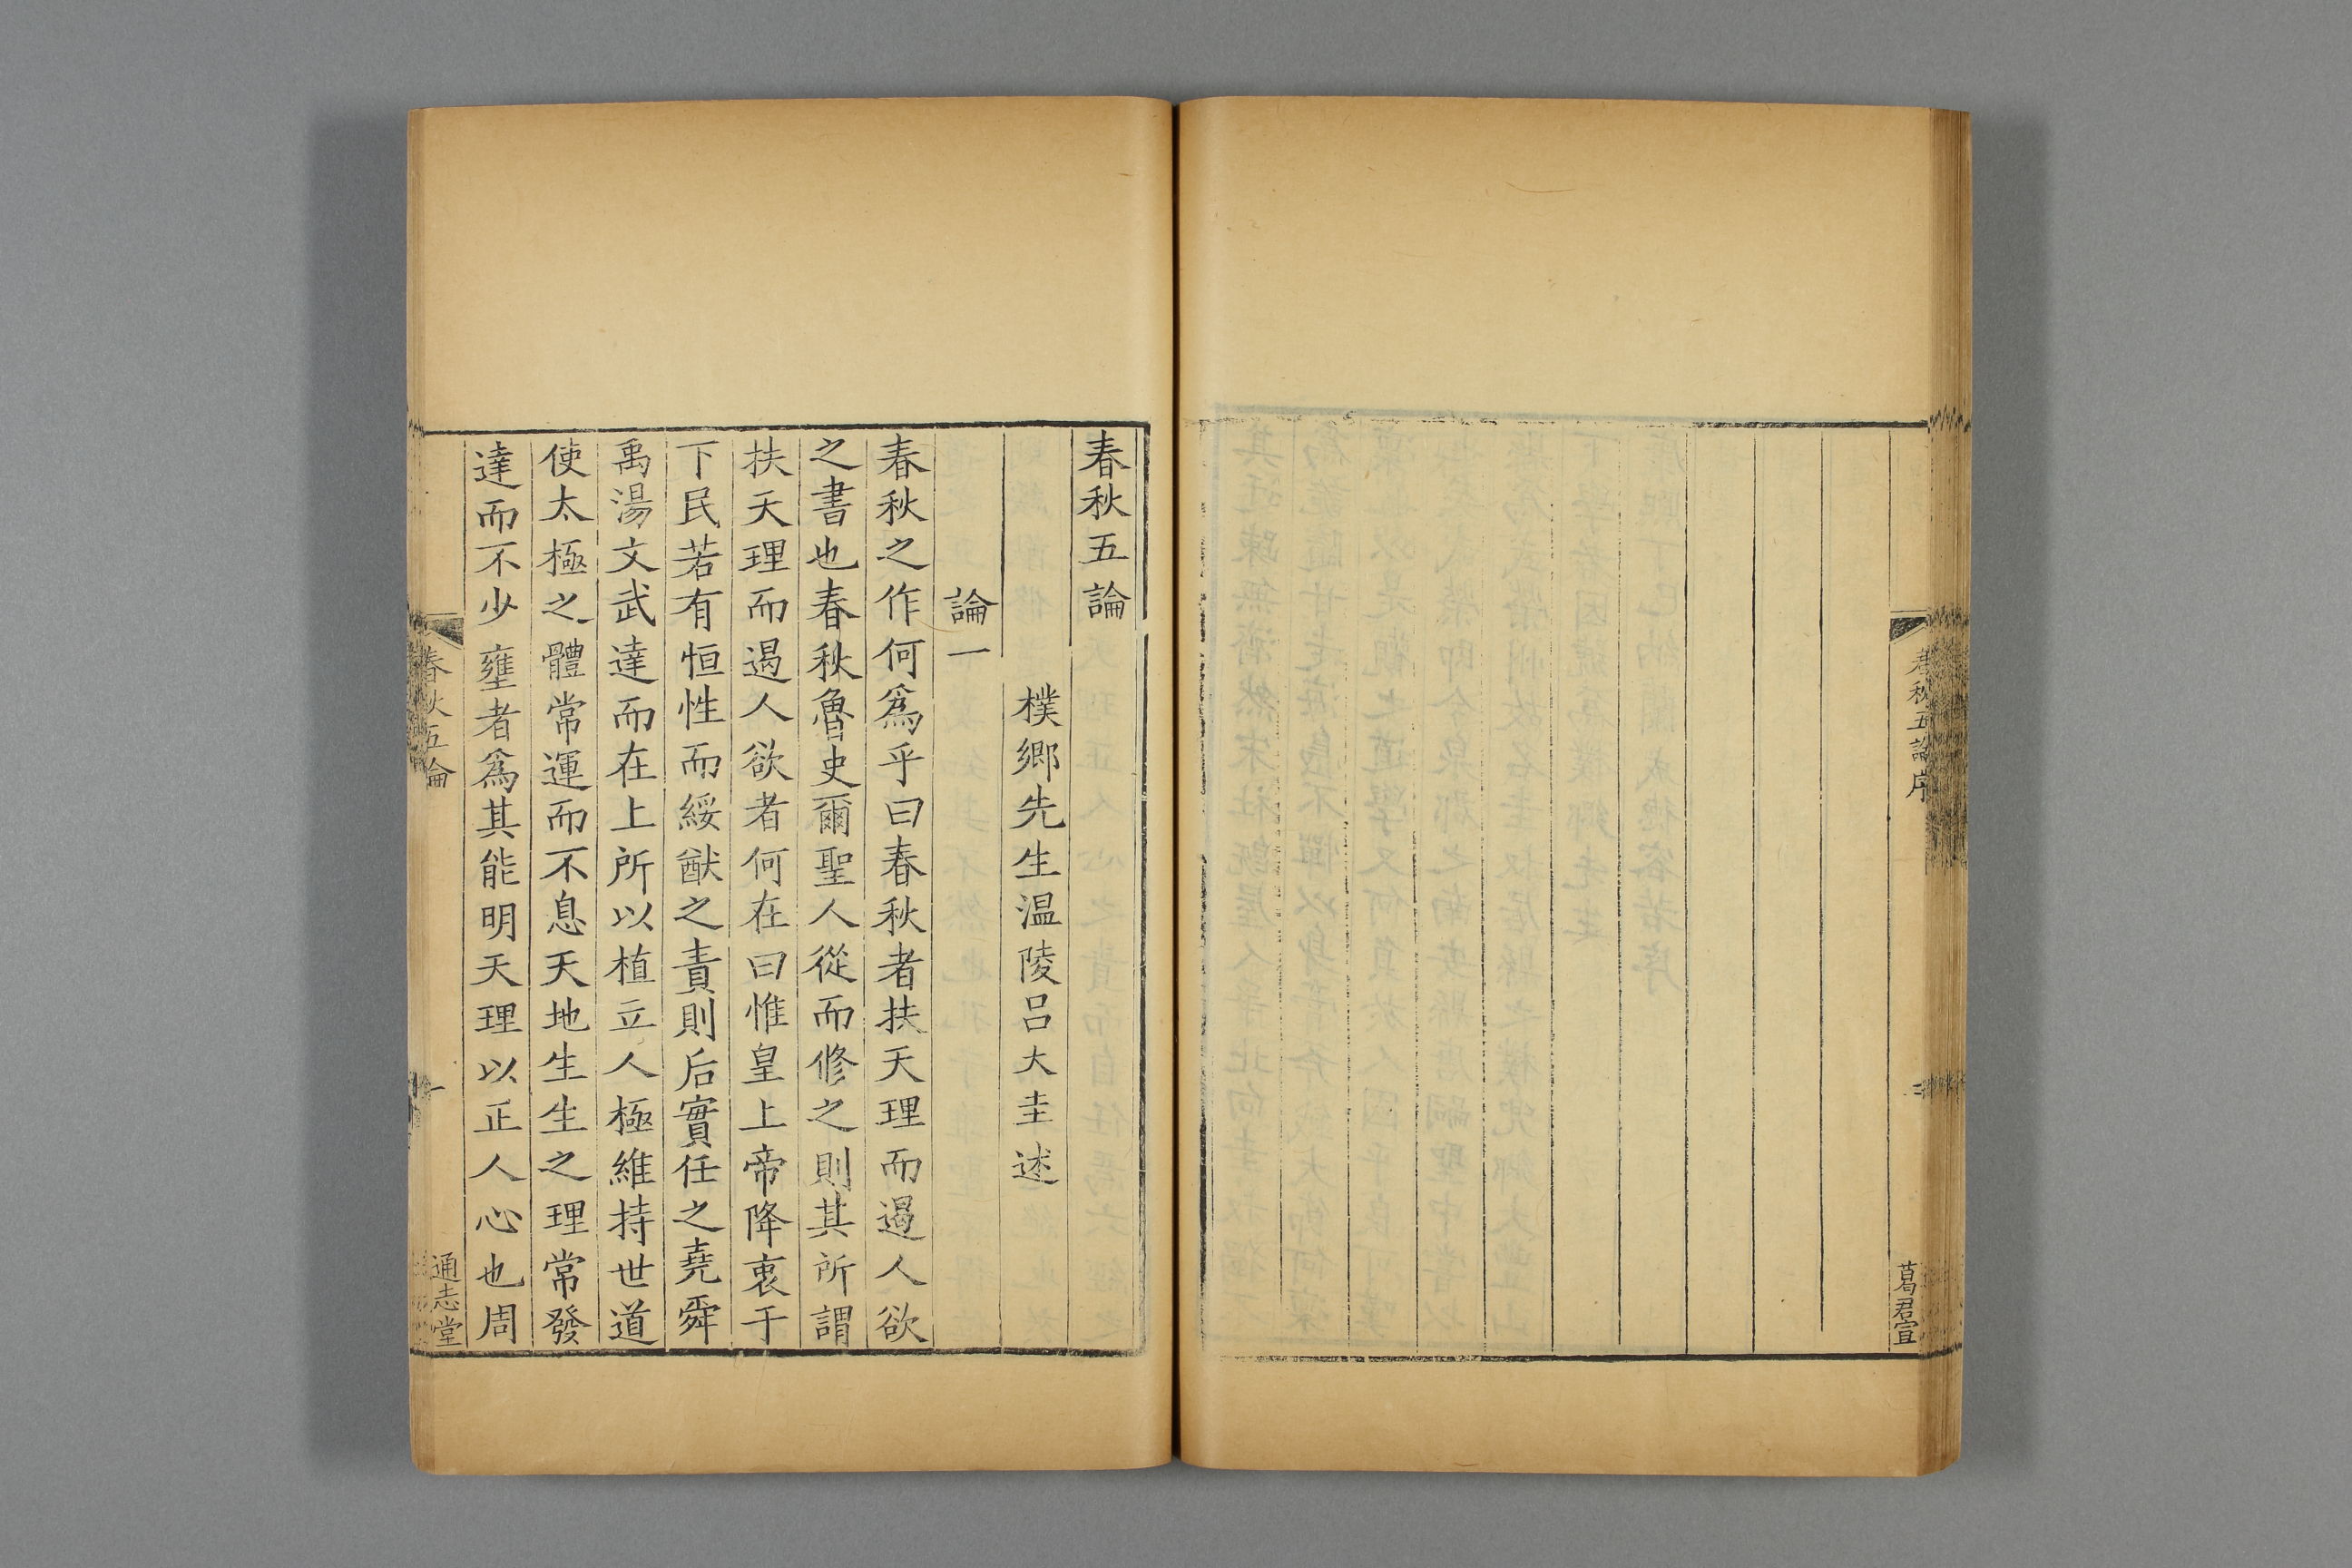 春秋五論序
二
葛君宣
春秋五論
樸鄉先生温陵呂大圭述
論一
春秋之作何爲乎曰春秋者扶天理而遏人欲
之書也春秋魯史爾聖人從而修之則其所謂
扶天理而遏人欲者何在曰惟皇上帝降衷于
下民若有恒性而綏猷之責則后實任之堯舜
禹湯文武達而在上所以植立人極維持世道
使太極之體常運而不息天地生生之理常發
達而不少壅者爲其能明天理以正人心也周
春秋五論
一
通志堂